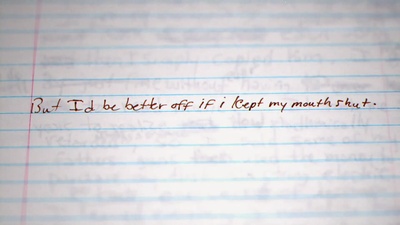 But Id be better off if i kept my mouth shut.